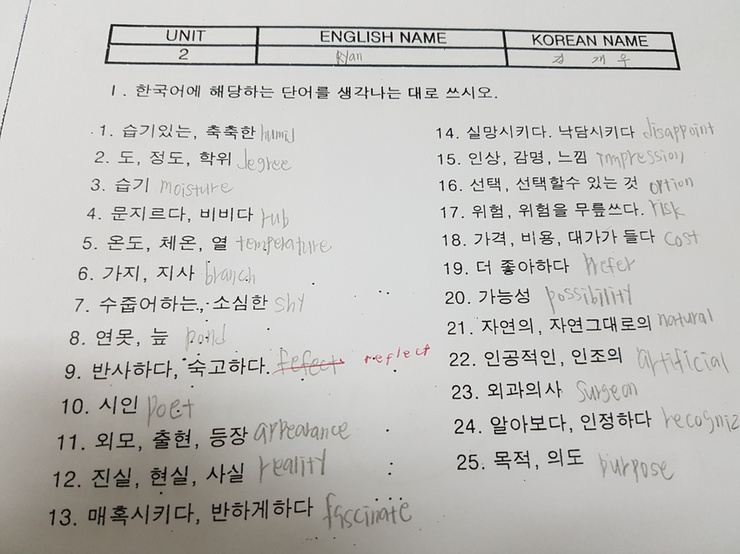 UNIT ENGLISH NAME KOREAN NAME
2 Ryan 김재우
Ⅰ. 한국어에 해당하는 단어를 생각나는 대로 쓰시오.
1. 습기있는, 축축한 humid
2. 도, 정도, 학위 degree
3. 습기 moisture
4. 문지르다, 비비다 rub
5. 온도, 체온, 열 temperature
6. 가지, 지사 branch
7. 수줍어하는, 소심한 shy
8. 연못, 늪 pond
9. 반사하다, 숙고하다. refect reflect
10. 시인 poet
11. 외모, 출현, 등장 appearance
12. 진실, 현실, 사실 reality
13. 매혹시키다, 반하게하다 fascinate
14. 실망시키다. 낙담시키다 disappoint
15. 인상, 감명, 느낌 impression
16. 선택, 선택할수 있는 것 option
17. 위험, 위험을 무릎쓰다. risk
18. 가격, 비용, 대가가 들다 cost
19. 더 좋아하다 prefer
20. 가능성 possibility
21. 자연의, 자연그대로의 natural
22. 인공적인, 인조의 artificial
23. 외과의사 surgeon
24. 알아보다, 인정하다 recogniz
25. 목적, 의도 purpose